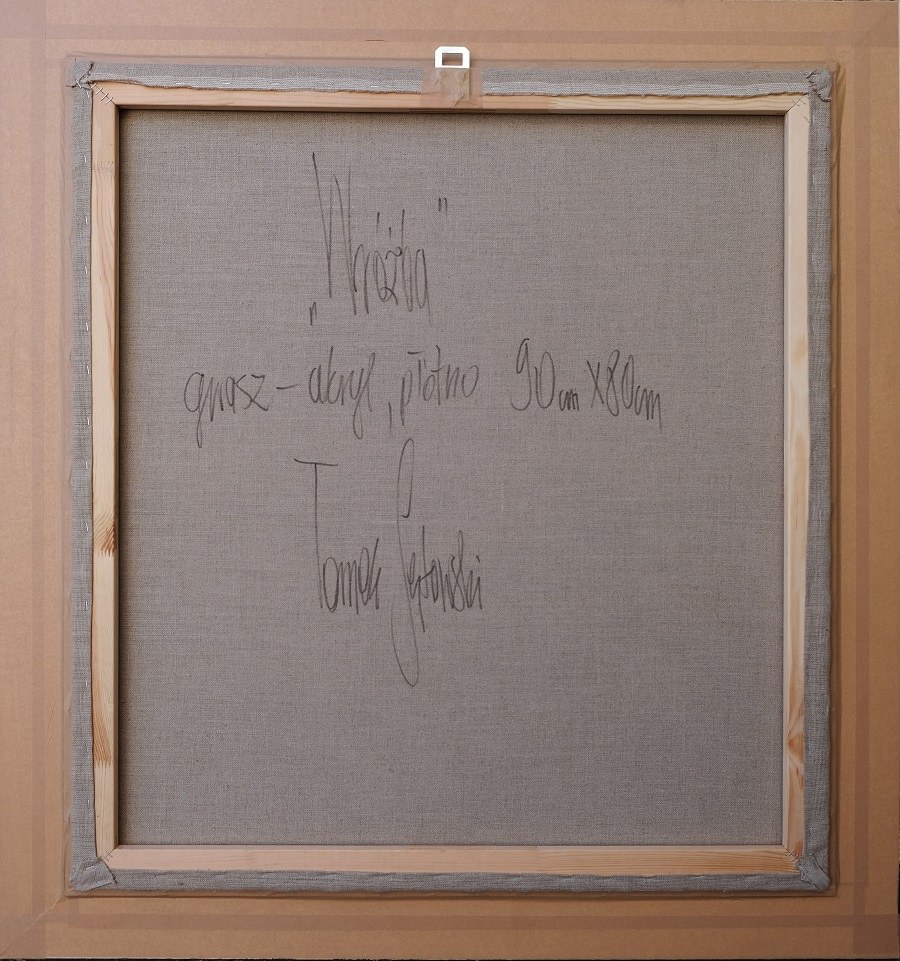 „Wróżba"
gwasz - akryl, płótno 90cm x 80cm
Tomek Sętowski